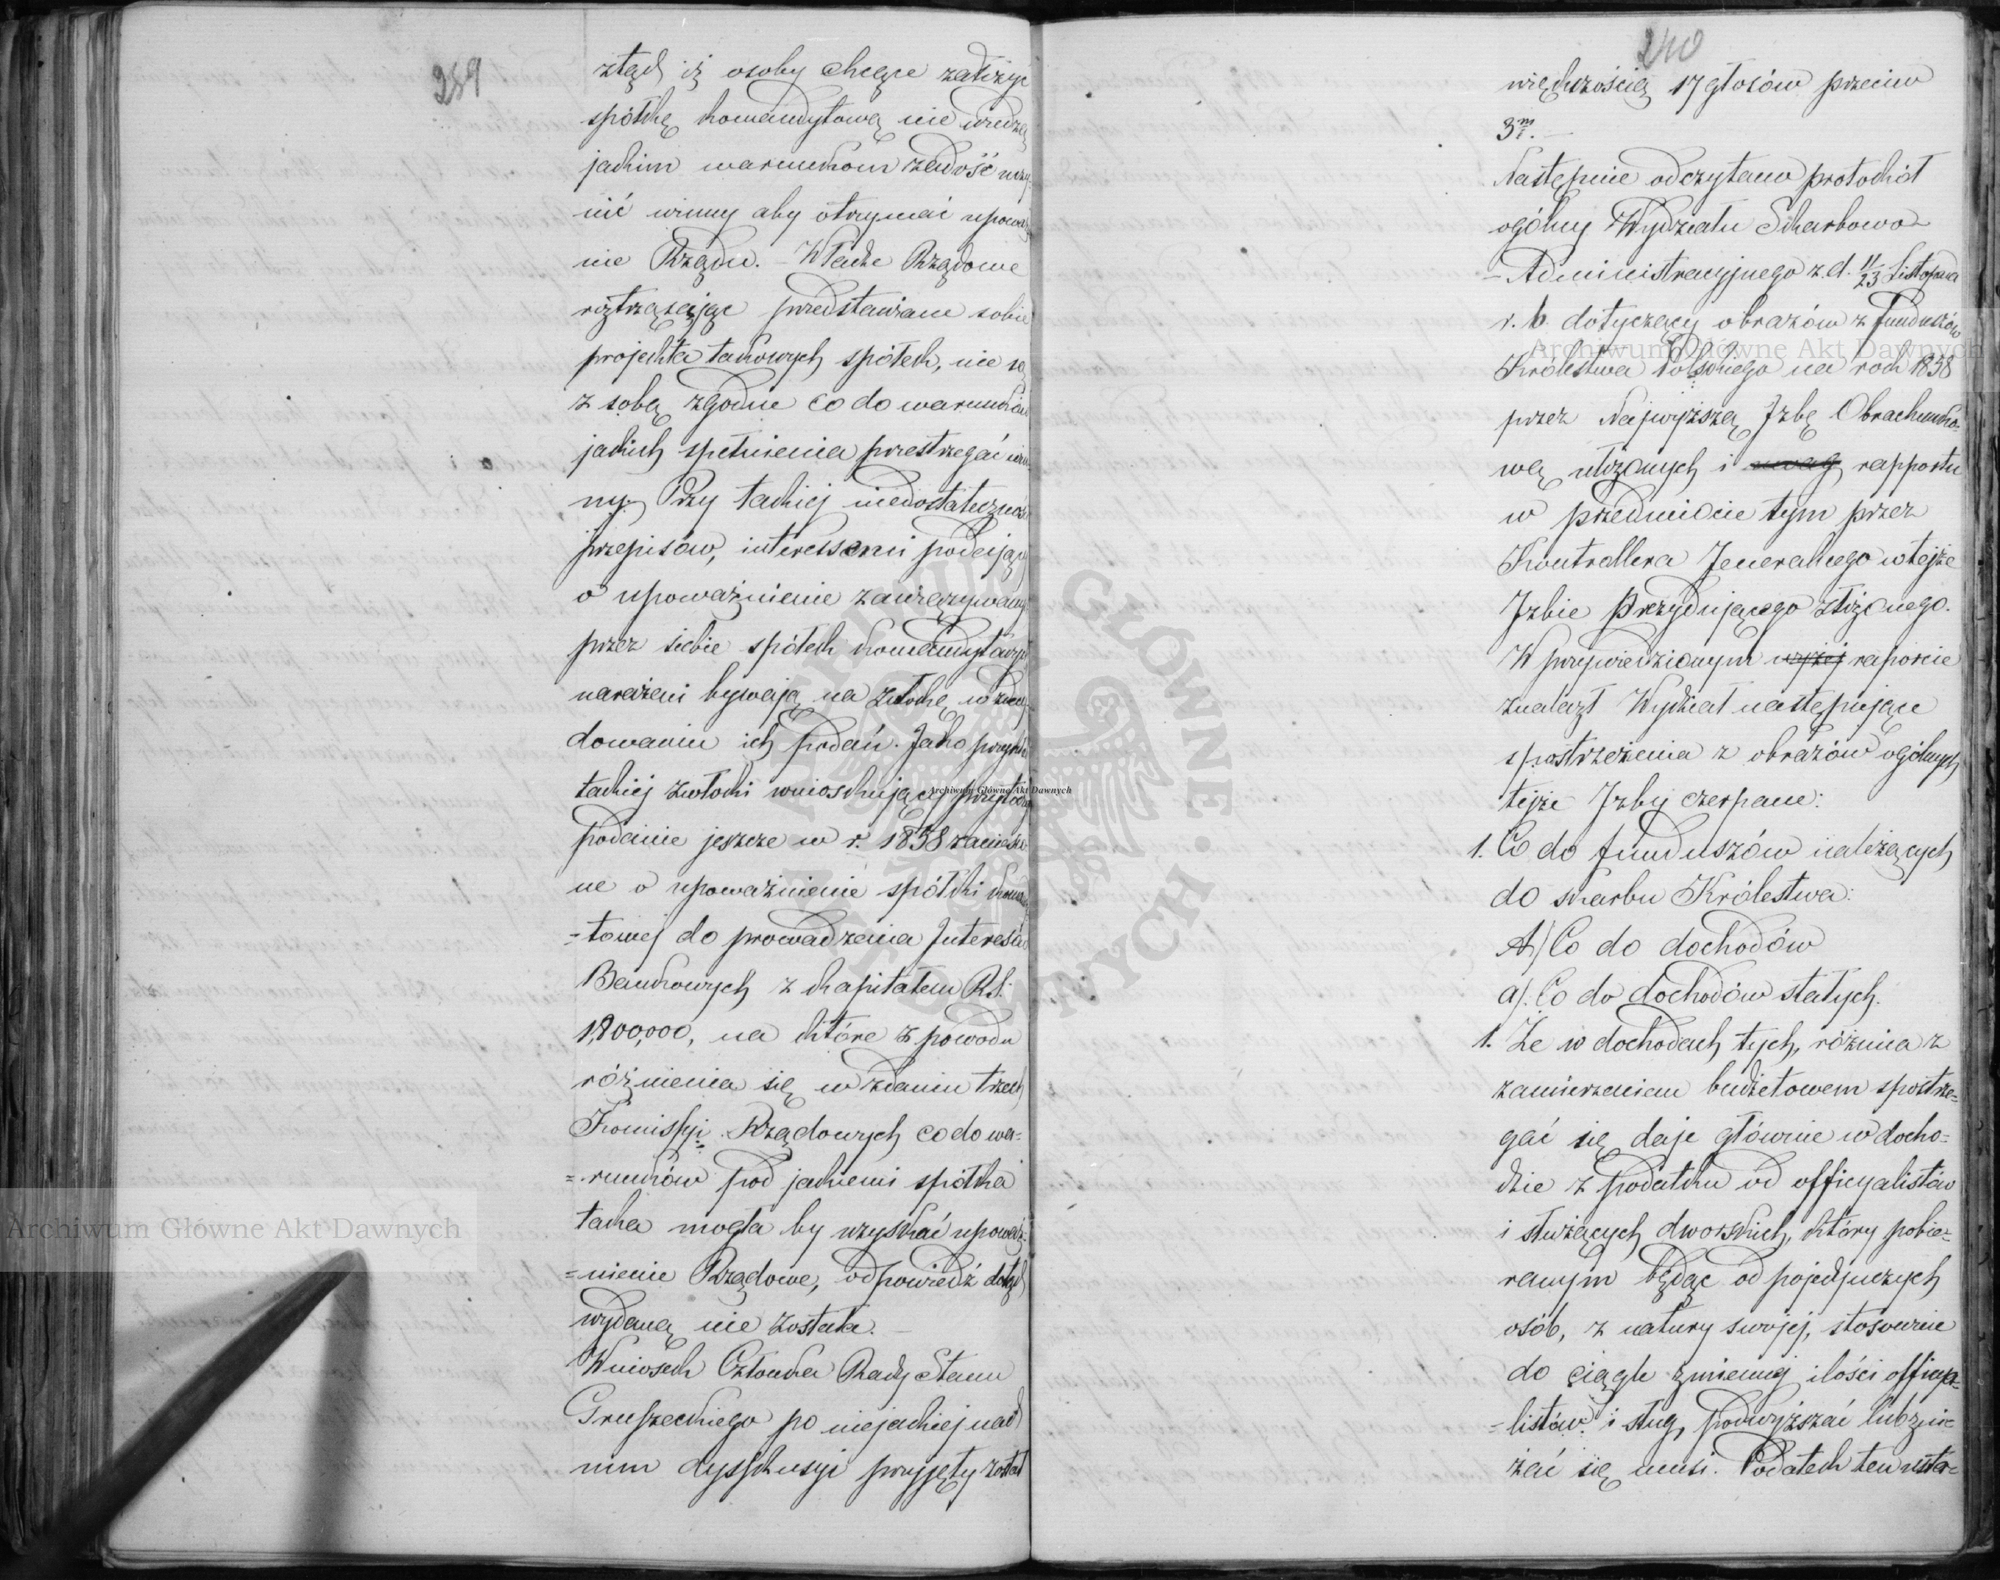 239
ztąd iż osoby chcące założyć
spółkę komandytową nie wiedzą
jakim warunkom zadość uczy-
nić winny aby otrzymać upoważ
nie Rządu. – Władze Rządowe
roztrząsając przedstawiane sobie
projekta takowych spółek, nie są
z sobą zgodne co do warunków
jakich spełnienia przestrzegać win
ny. Przy takiej niedostateczności
przepisów, interessenci podający
o upoważnienie zawiązywanych
przez siebie spółek komandytowych
narażeni bywają na zwłokę w zała
dowaniu ich podań. Jako przykład
takiej zwłoki wnioskujący przytoczył
podanie jeszcze w r. 1858 zaniesio
ne o upoważnienie spółki koman
=towej do prowadzenia Interesów
Bankowych z kapitałem R.S:
1,800,000, na które z powodu
różnienia się w zdaniu trzech
Komissyi Rządowych co do wa=
=runków pod jakiemi spółka
taka mogła by uzyskać upoważ=
=nienie Rządowe, odpowiedź dotąd
wydaną nie została. –
Wniosek Członka Rady Stanu
Gruszeckiego po niejakiej nad
nim dyskusyi przyjęty został
240
większością 17 głosów przeciw
3m. –
Następnie odczytano protokół
ogólny Wydziału Skarbowo–
–Administracyjnego z d. 11/23 Listopada
r. b. dotyczący obrazów z funduszów
Królestwa Polskiego na rok 1858
przez Najwyższą Izbę Obrachunko-
wą ułożonych i uwag rapportu
w przedmiocie tym przez
Kontrollera Jeneralnego w tejże
Izbie Prezydującego złożonego.
W przywiedzionym wyżej raporcie
znalazł Wydział następujące
spostrzeżenia z obrazów ogólnych
tejże Izby czerpane:
1. Co do funduszów należących
do skarbu Królestwa:
A) Co do dochodów
a). Co do dochodów stałych.
1. Że w dochodach tych, różnica z
zamierzeniem budżetowem spostrze=
gać się daje głównie w docho=
dzie z podatku od officyalistów
i służących dworskich, który pobie=
ranym będąc od pojedyńczych
osób, z natury swojej, stosownie
do ciągle zmiennej ilości officya=
=listów i sług, podwyższać lub zni=
żać się musi. Podatek ten usta=
Archiwum Główne Akt Dawnych
Archiwum Główne Akt Dawnych
Archiwum Główne Akt Dawnych
ARCHIWUM GŁÓWNE AKT DAWNYCH